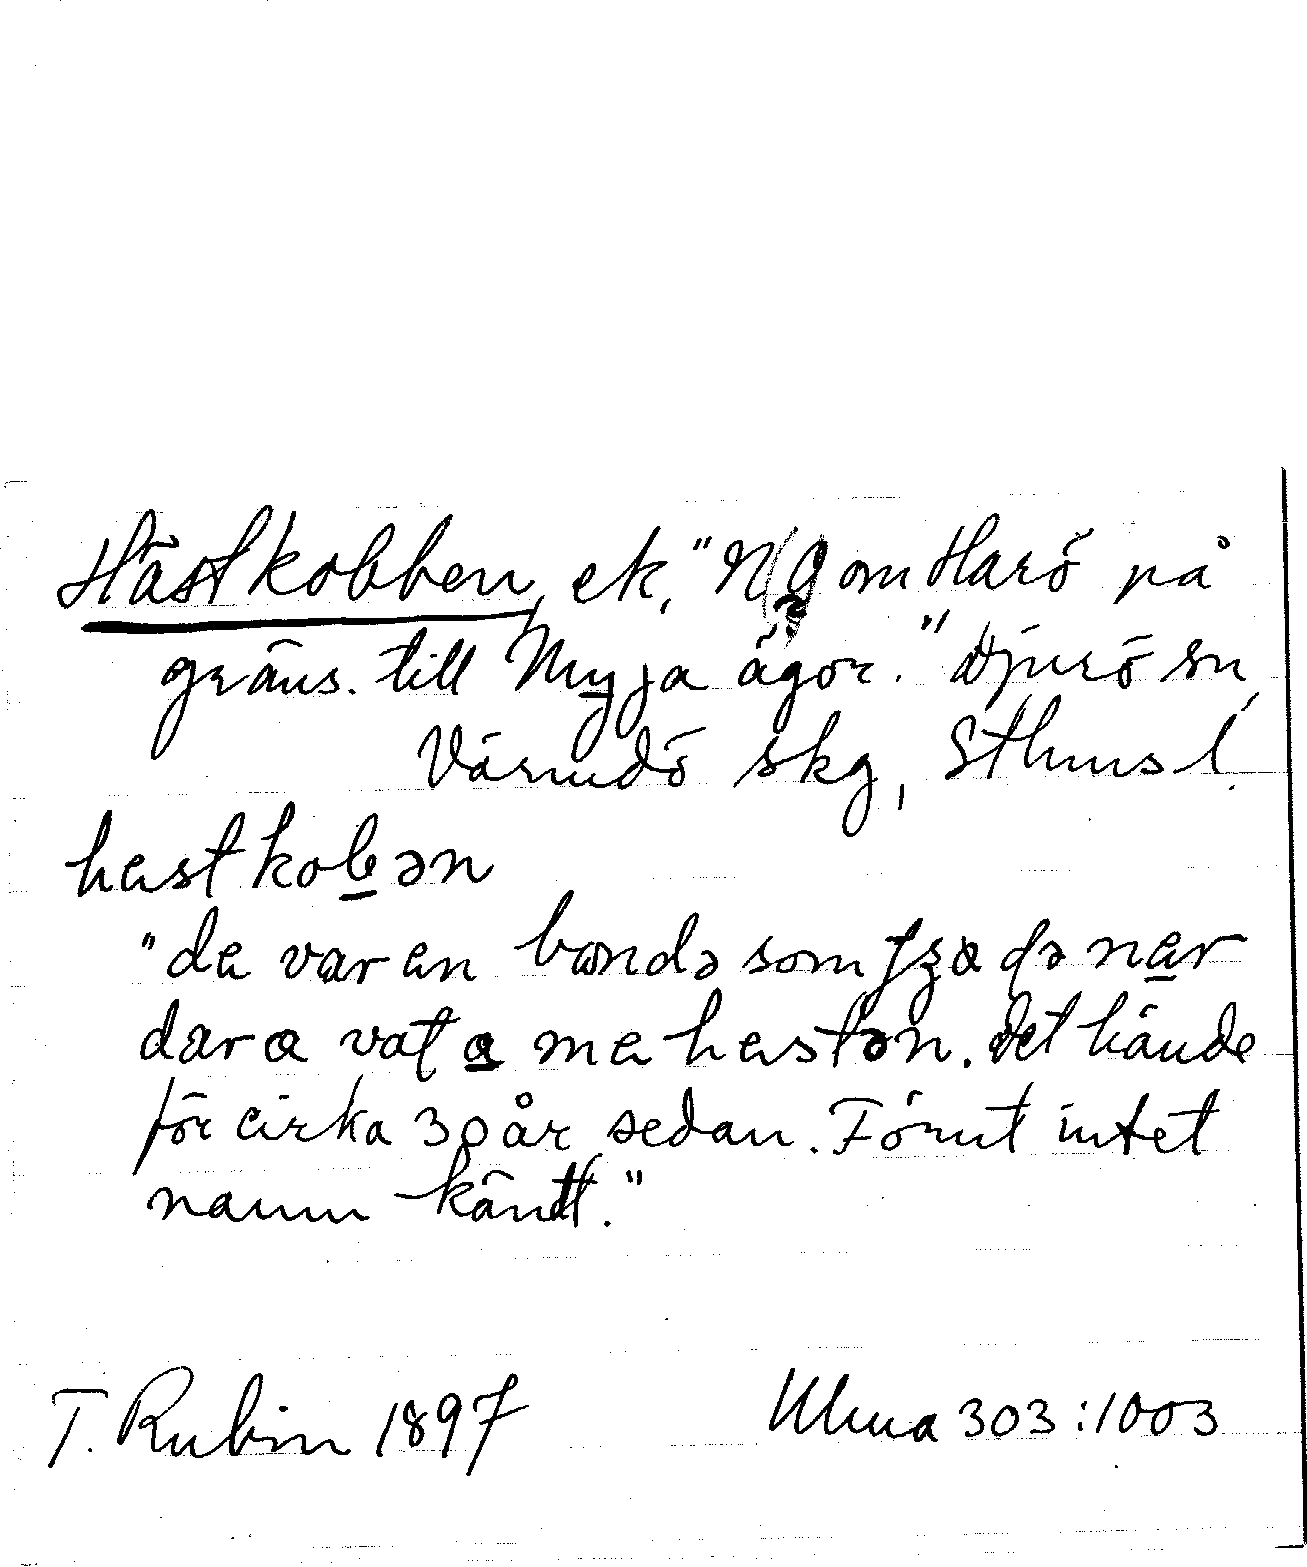 Hästkobben, ek, "NO om Harö på
gräns. till Myja ägor." Djurö sn,
Värmdö skg, Sthms l.
hestkobən
"de var en bondə som də nær
dær a vat a me hestən. Det hände
för cirka 30 år sedan. Förut intet
namn känt."
T. Rubin 1897 Ulma 303:1003